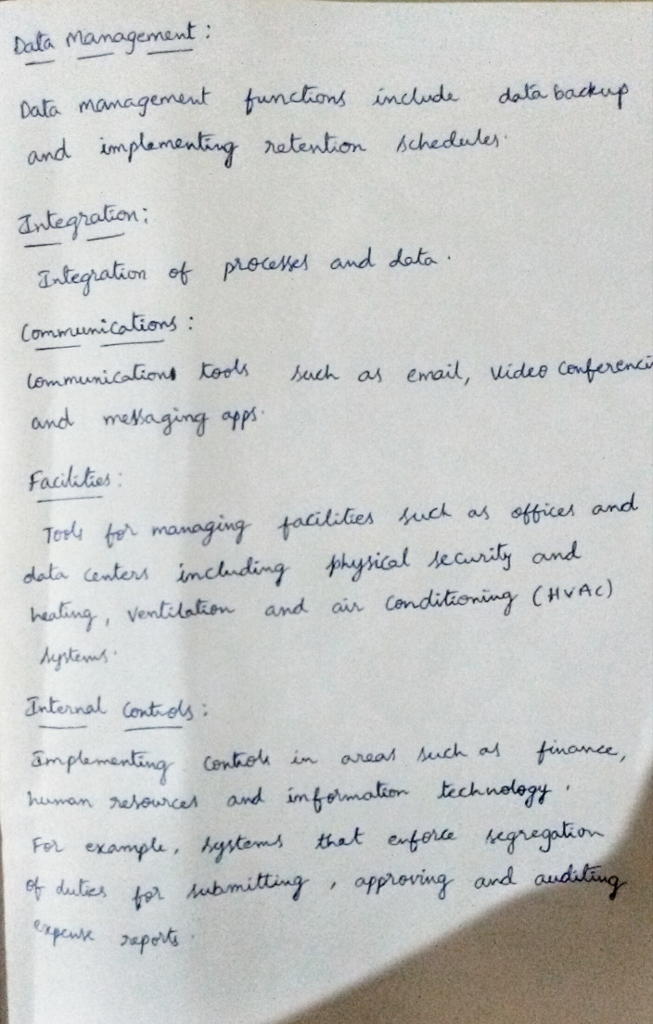 Data Management :
Data management functions include data backup
and implementing retention schedules.
Integration :
Integration of processes and data .
Communications :
Communications tools such as email, video conferenci
and messaging apps.
Facilities :
Tools for managing facilities such as offices and
data centers including physical security and
heating, ventilation and air conditioning (HVAC)
systems.
Internal Controls :
Implementing controls in areas such as finance,
human resources and information technology .
For example, systems that enforce segregation
of duties for submitting , approving and auditing
expense reports .